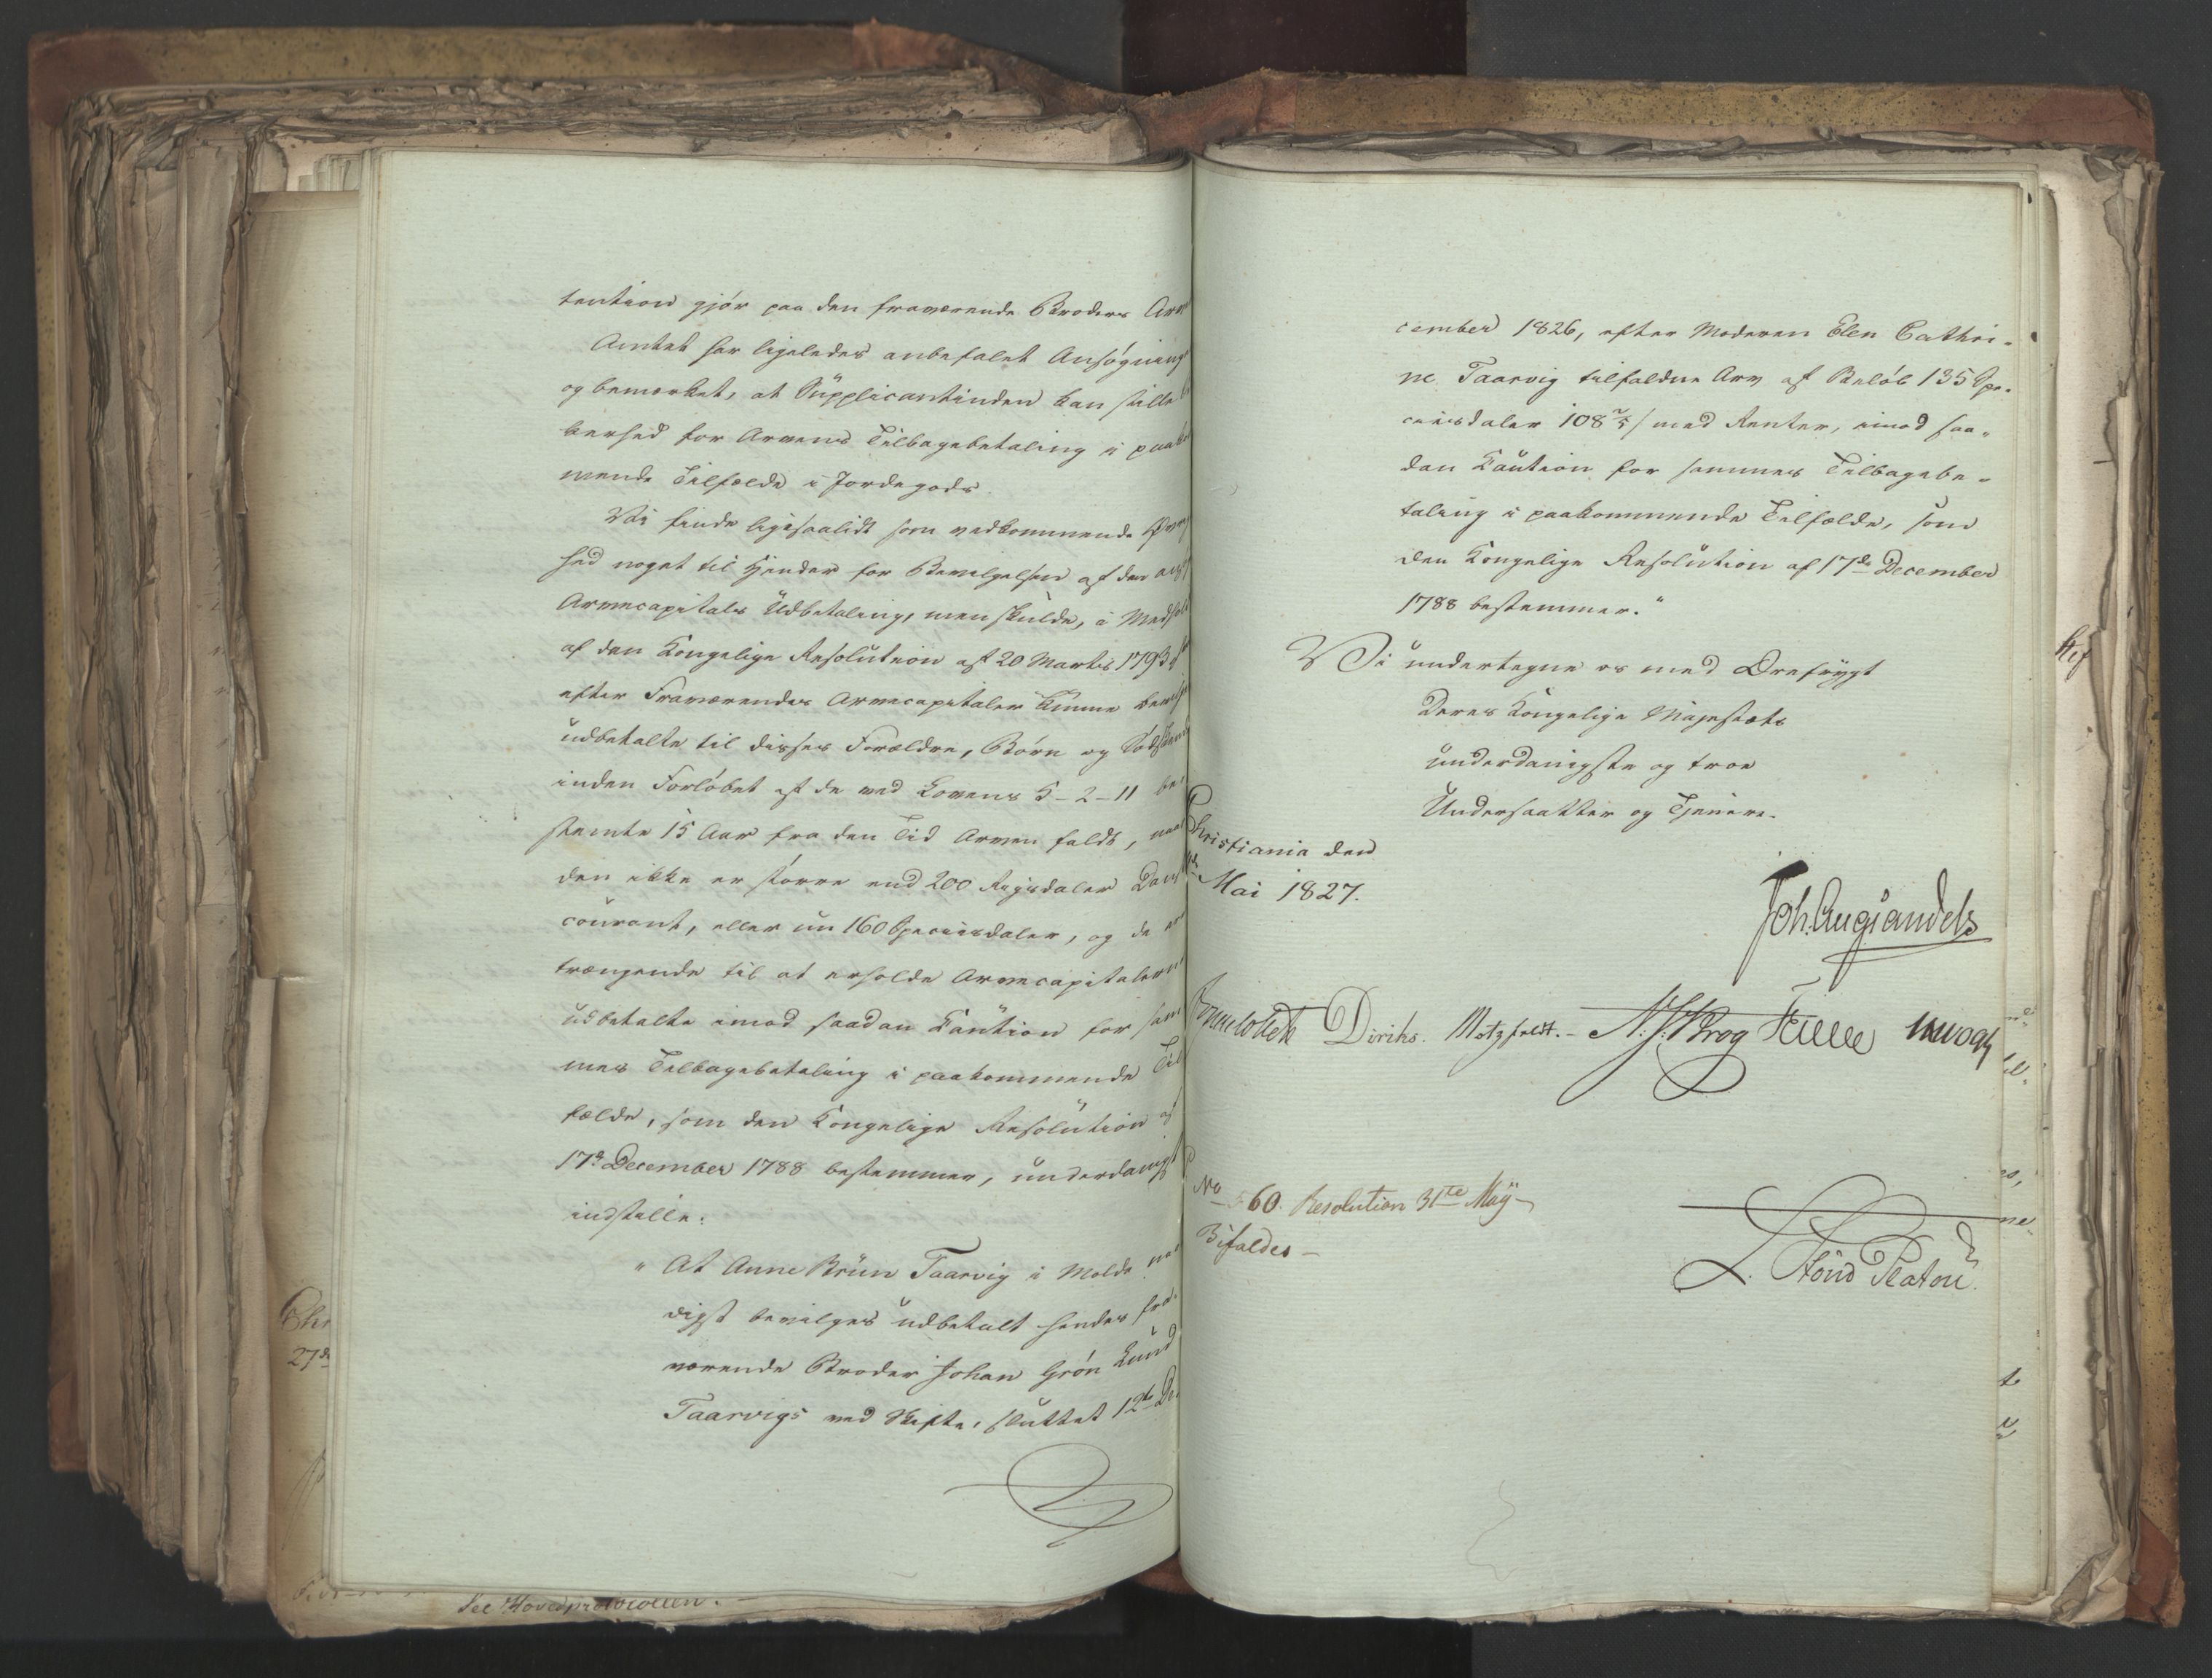 tention gjör paa den fraværende Broders Arv
Amtet har ligeledes anbefalet Ansøgning
og bemærket, at Supplicantinden kan stille
kerhed for Arvens Tilbagebetaling i paakom
mende Tilfælde i Jordegods.
Vi finde ligesaalidt som vedkommende Øvrig
hed noget til Hinder for Bevilgelsen af den
Arvecapitals Udbetaling, men skulde, i Medhold
af den Kongelige Resolution af 20 Martis 1793
efter Fraværendes Arvecapitaler kunne
udbetalte til disses Forældre, Børn og Sødskende
inden Forløbet af de ved Lovens 5-2-11 be-
stemte 15 Aar fra den Tid Arven faldt, naar
den ikke er større end 200 Rigsdaler Dansk
courant, eller nu 160 Speciesdaler, og de ere
trængende til at erholde Arvecapitalerne
udbetalte imod saadan Caution for sam
mes Tilbagebetaling i paakommende Til
fælde, som den Kongelige Resolution af
17de December 1788 bestemmer, underdanigst
indstille:
" At Anne Brun Taarvig i Molde naa
digst bevilges udbetalt hendes fra-
værende Broder Johan Grøn Lund
Taarvigs ved Skifte, sluttet 12te De-
See Hovedprotocollen.
cember 1826, efter Moderen Elen Cathri-
ne Taarvig tilfaldne Arv af Beløb 135 Spe-
ciesdaler 108 med Renter, imod saa-
dan Caution for sammes Tilbagebe-
taling i paakommende Tilfælde, som
den Kongelige Resolution af 17de December
1788 bestemmer."
Vi undertegne os med Ærefrygt
Deres Kongelige Majestæts
underdanigste og troe
Undersaatter og Tjenere.
Christiania den
Mai 1827.
Joh. Aug. Sandels
Diriks. Motzfeldt. Krog
No 560. Resolution 31te Maij
Bifaldes
Stoud Platou